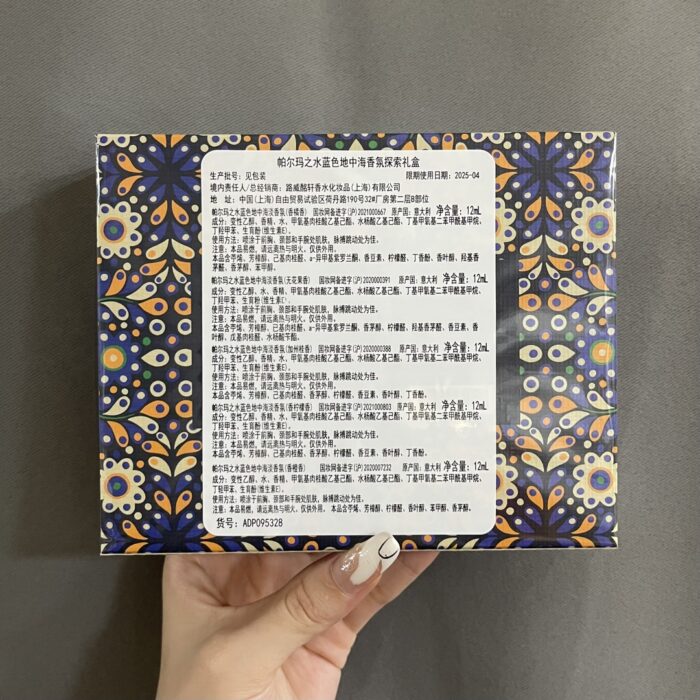 帕尔玛之水蓝色地中海香氛探索礼盒
生产批号：见包装 限期使用日期：2025-04
境内责任人/总经销商：路威酩轩香水化妆品(上海)有限公司
地 址：中国(上海)自由贸易试验区荷丹路190号32#厂房第二层B部位
帕尔玛之水蓝色地中海淡香氛(香橘香) 国妆网备进字(沪)2021000667 原产国：意大利 净含量：12mL
成分：变性乙醇、香精、水、甲氧基肉桂酸乙基己酯、水杨酸乙基己酯、丁基甲氧基二苯甲酰基甲烷、
丁羟甲苯、生育酚(维生素E)。
使用方法：喷涂于前胸、颈部和手腕处肌肤，脉搏跳动处为佳。
注意：本品易燃，请远离热与明火。仅供外用。
本品含苧烯、芳樟醇、己基肉桂醛、a-异甲基紫罗兰酮、香豆素、柠檬醛、丁香酚、香叶醇、羟基香
茅醛、香茅醇、苯甲醇。
帕尔玛之水蓝色地中海淡香氛(无花果香) 国妆网备进字(沪)2020000391 原产国：意大利 净含量：12mL
成分：变性乙醇、水、香精、甲氧基肉桂酸乙基己酯、水杨酸乙基己酯、丁基甲氧基二苯甲酰基甲烷、
丁羟甲苯、生育酚(维生素E)。
使用方法：喷涂于前胸、颈部和手腕处肌肤，脉搏跳动处为佳。
注意：本品易燃，请远离热与明火。仅供外用。
本品含苧烯、芳樟醇、己基肉桂醛、a-异甲基紫罗兰酮、香茅醇、柠檬醛、羟基香茅醛、香豆素、香
叶醇、戊基肉桂醛、水杨酸苄酯。
帕尔玛之水蓝色地中海淡香氛(加州桂香) 国妆网备进字(沪)2020000388 原产国：意大利 净含量：12mL
成分：变性乙醇、水、香精、甲氧基肉桂酸乙基己酯、水杨酸乙基己酯、丁基甲氧基二苯甲酰基甲烷、
丁羟甲苯、生育酚(维生素E)。
使用方法：喷涂于前胸、颈部和手腕处肌肤，脉搏跳动处为佳。
注意：本品易燃，请远离热与明火。仅供外用。
本品含苧烯、芳樟醇、己基肉桂醛、香茅醇、柠檬醛、香豆素、香叶醇、丁香酚。
帕尔玛之水蓝色地中海淡香氛(香柠檬香) 国妆网备进字(沪)2021000803 原产国：意大利 净含量：12mL
成分：变性乙醇、香精、水、甲氧基肉桂酸乙基己酯、水杨酸乙基己酯、丁基甲氧基二苯甲酰基甲烷、
丁羟甲苯、生育酚(维生素E)。
使用方法：喷涂于前胸、颈部和手腕处肌肤，脉搏跳动处为佳。
注意：本品易燃，请远离热与明火。仅供外用。
本品含苧烯、芳樟醇、己基肉桂醛、香茅醇、柠檬醛、香豆素、香叶醇、丁香酚。
帕尔玛之水蓝色地中海淡香氛(香橙香) 国妆网备进字(沪)2020007232 原产国：意大利 净含量：12mL
成分：变性乙醇、水、香精、甲氧基肉桂酸乙基己酯、水杨酸乙基己酯、丁基甲氧基二苯甲酰基甲烷、
丁羟甲苯、生育酚(维生素E)。
使用方法：喷涂于前胸、颈部和手腕处肌肤，脉搏跳动处为佳。
注意：本品易燃，请远离热与明火。仅供外用。 本品含苧烯、芳樟醇、柠檬醛、香叶醇、苯甲醇、香茅醇。
货号：ADP095328